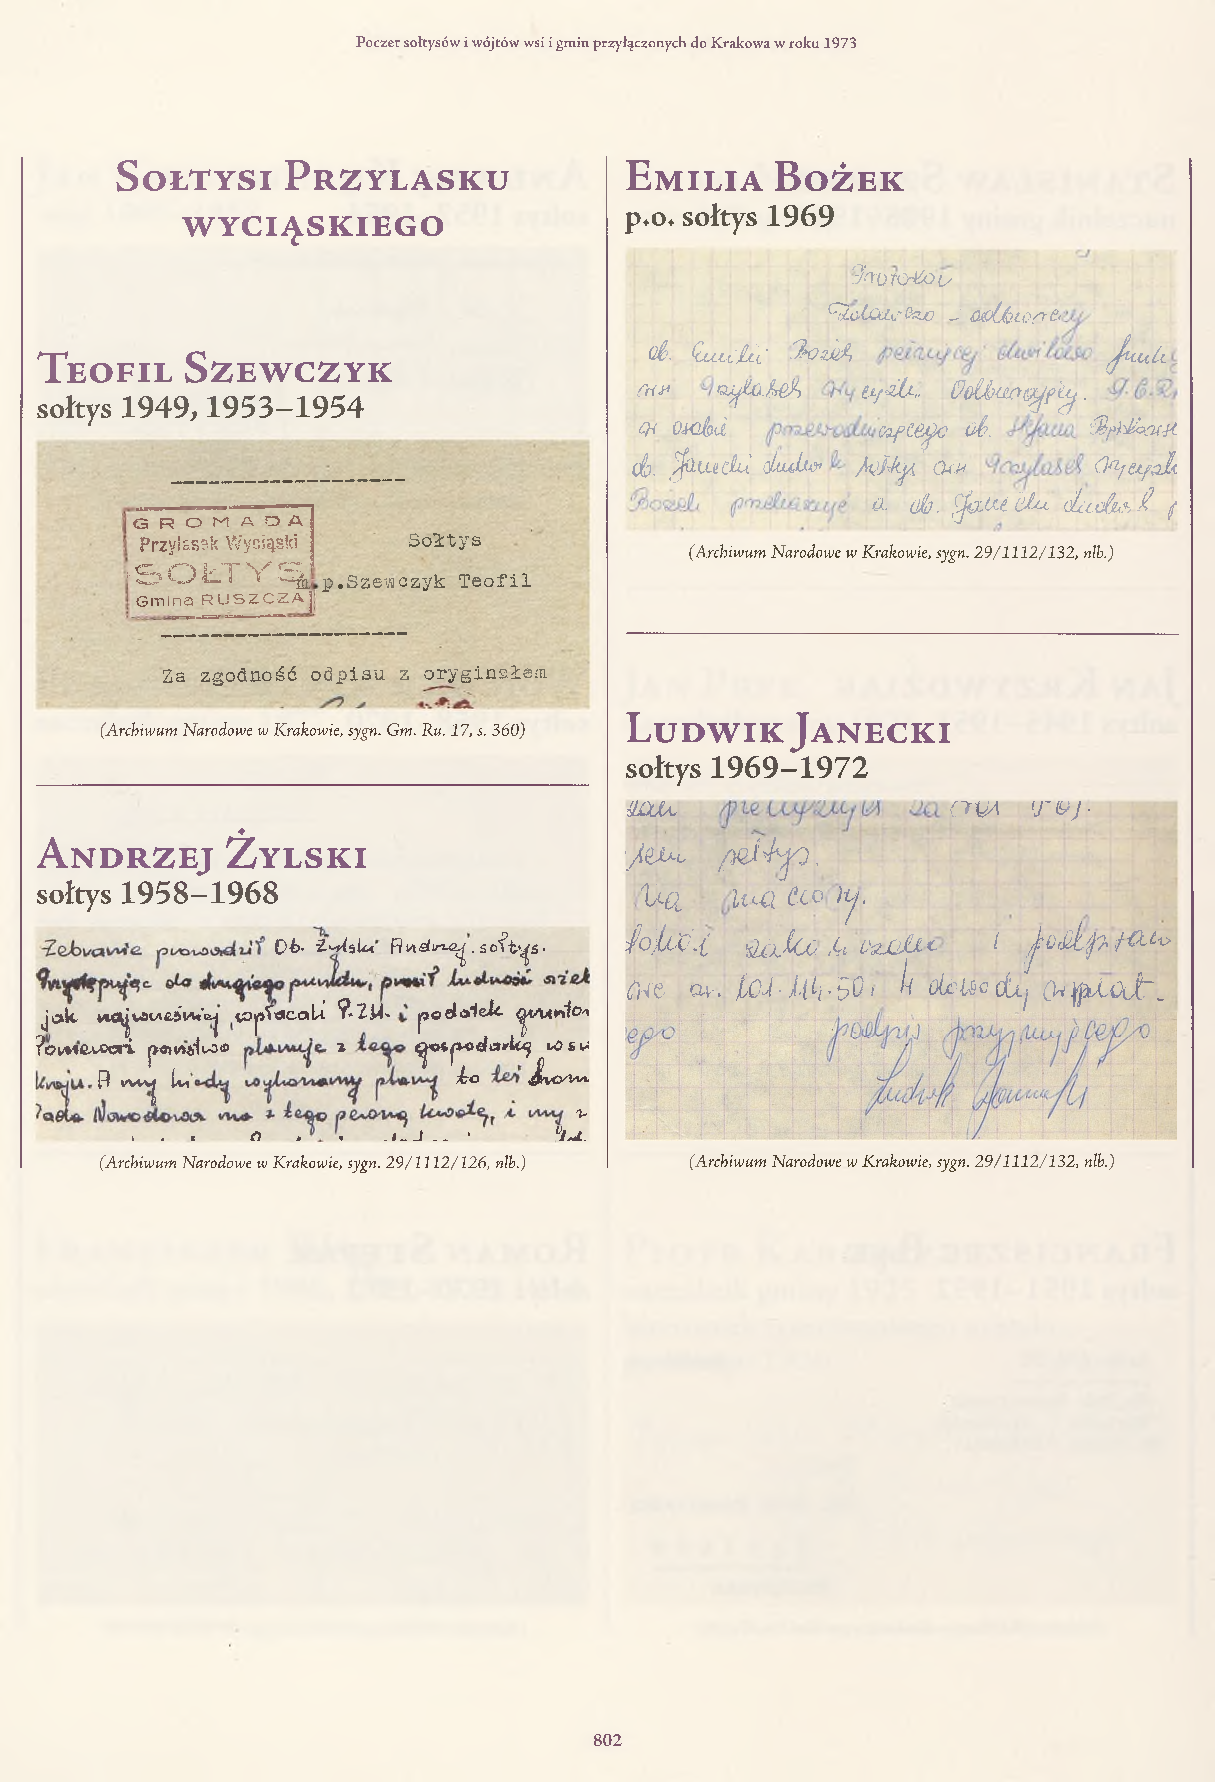 Poczet sołtysów i wójtów wsi i gmin przyłączonych do Krakowa w roku 1973
Sołtysi Przylasku
wyciąskiego
Teofil Szewczyk
sołtys 1949, 1953–1954
GROMADA
Przylasek Wyciąski
SOŁTYS
Gmina RUSZCZA
Sołtys
m.p.Szewczyk Teofil
Za zgodność odpisu z oryginałem
(Archiwum Narodowe w Krakowie, sygn. Gm. Ru. 17, s. 360)
Andrzej Żylski
sołtys 1958–1968
Zebranie prowadził Ob. Żylski Andrzej. sołtys.
Przystępując do drugiego punktu, prosił ludność
jak najwcześniej wpłacali P.Z.U. i podatek grunto
Ponieważ państwo planuje z tego gospodarkę w
kraju. A my kiedy wykonamy plany to też
Rada Narodowa ma z tego pewną kwotę, i my z
(Archiwum Narodowe w Krakowie, sygn. 29/1112/126, nlb.)
Emilia Bożek
p.o. sołtys 1969
Protokół
Zdawczo - odbiorczy
ob. Emilii Bożek pełniącej chwilowo funk
wsi Przylasek Wyciąski. Odbierający.
w osobie przewodniczącego ob. Stefana
ob. Janecki Ludwik sołtys wsi Przylasek Wyciąsk
Bożek przekazuje a ob. Janecki Ludwik p
(Archiwum Narodowe w Krakowie, sygn. 29/1112/132, nlb.)
Ludwik Janecki
sołtys 1969–1972
pieniężnych za
sołtys.
Na
zakończono i podpisano
101.114.50, 4 dowody wpłat.
ego podpis przyjmującego
Ludwik Janecki
(Archiwum Narodowe w Krakowie, sygn. 29/1112/132, nlb.)
802